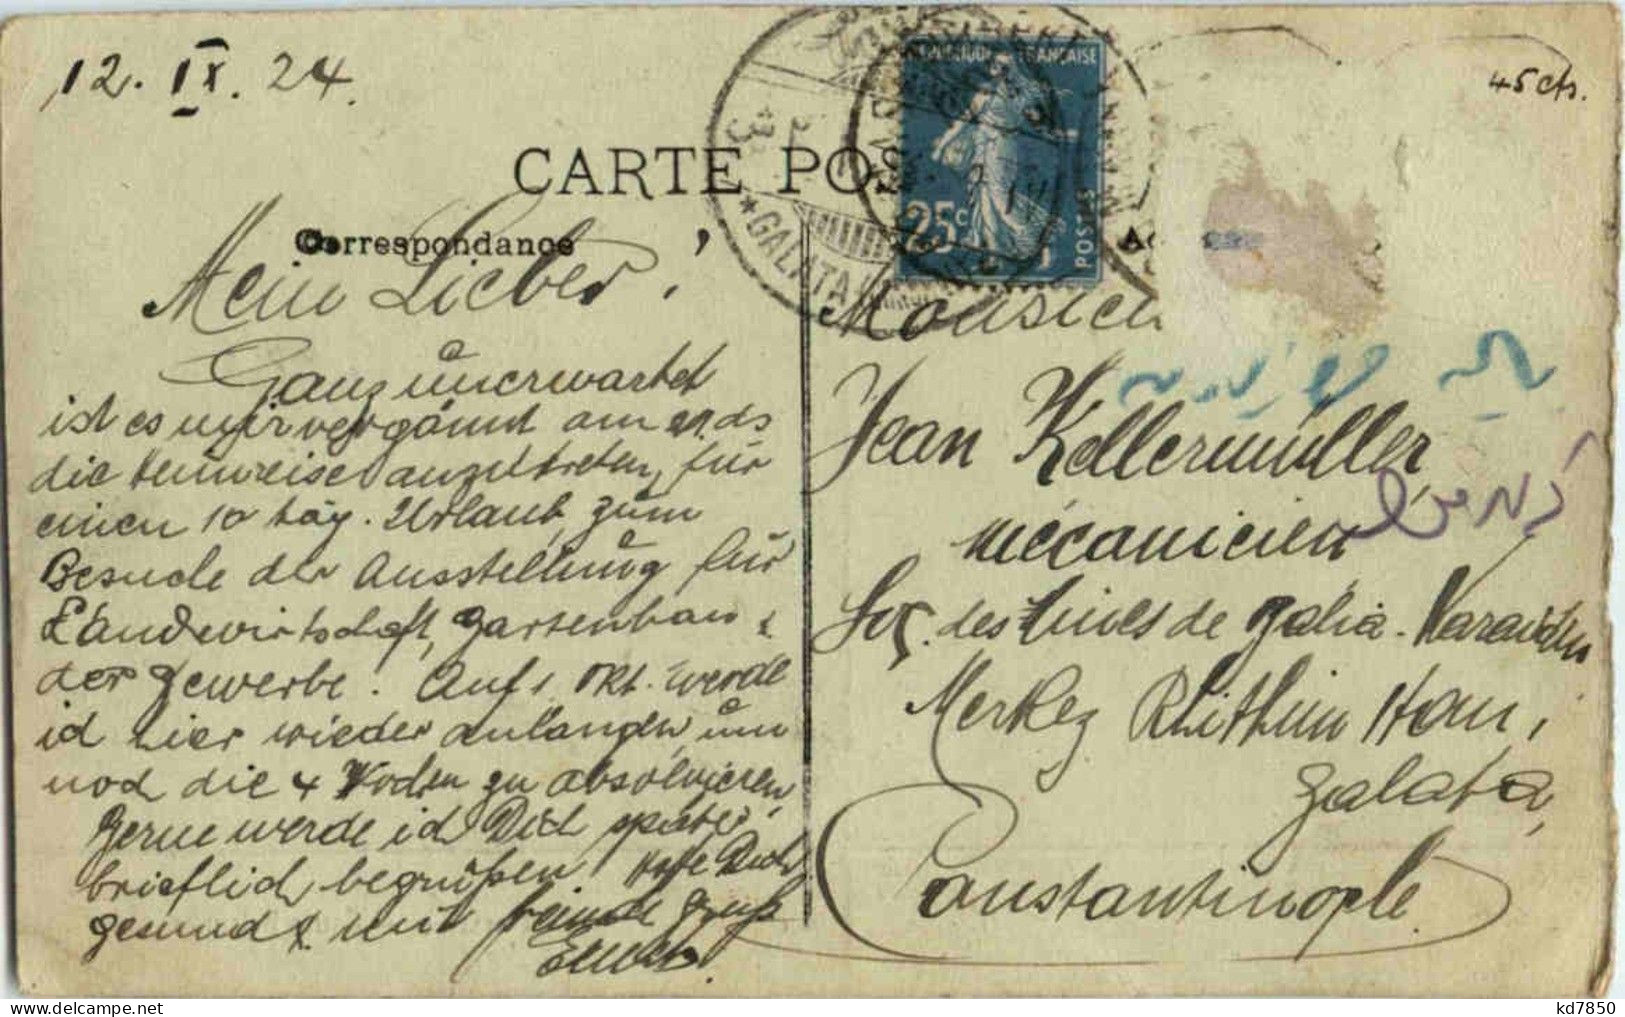 12. IX. 24.
45 cts.
CARTE POS
Correspondance
FRANÇAISE
25c
POSTES
*GALATA
3
Mein Lieber,
Monsieu
Ganz unerwartet
ist es mir vergönnt am 21. ds
die Heimreise anzutreten, für
einen 10 täg. Urlaub, zum
Besuche der Ausstellung für
Landwirtschaft, Gartenbau &
der Gewerbe. Auf 1 Okt. werde
ich hier wieder anlangen, um
noch die 4 Wochen zu absolvieren.
Gerne werde ich Dich später
brieflich begrüßen. Halte Dich
gesund & mit Gruß
Jean Kellermüller,
mécanicien
Soc. des Mines de Balia-Karaïdin
Merkez Rhithim Han,
Galata,
Constantinople
kd7850